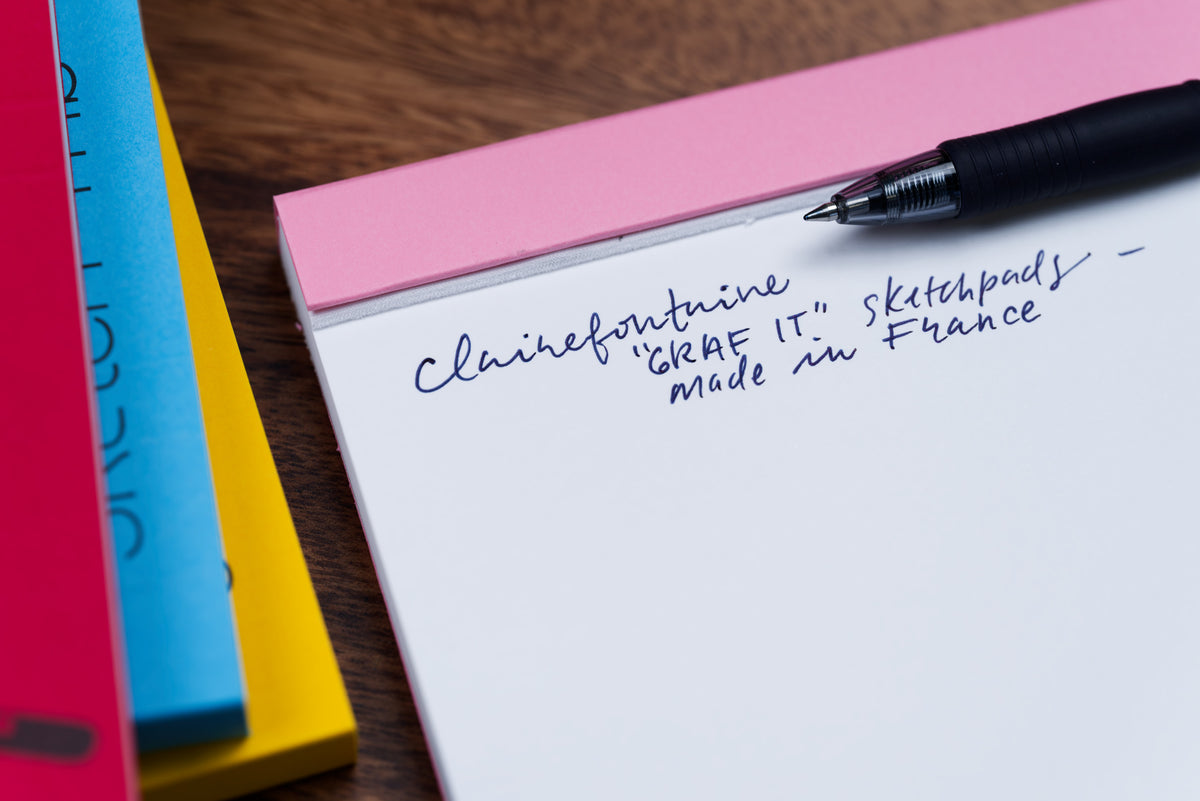 Clairefontaine
"GRAF IT" sketchpads –
made in France